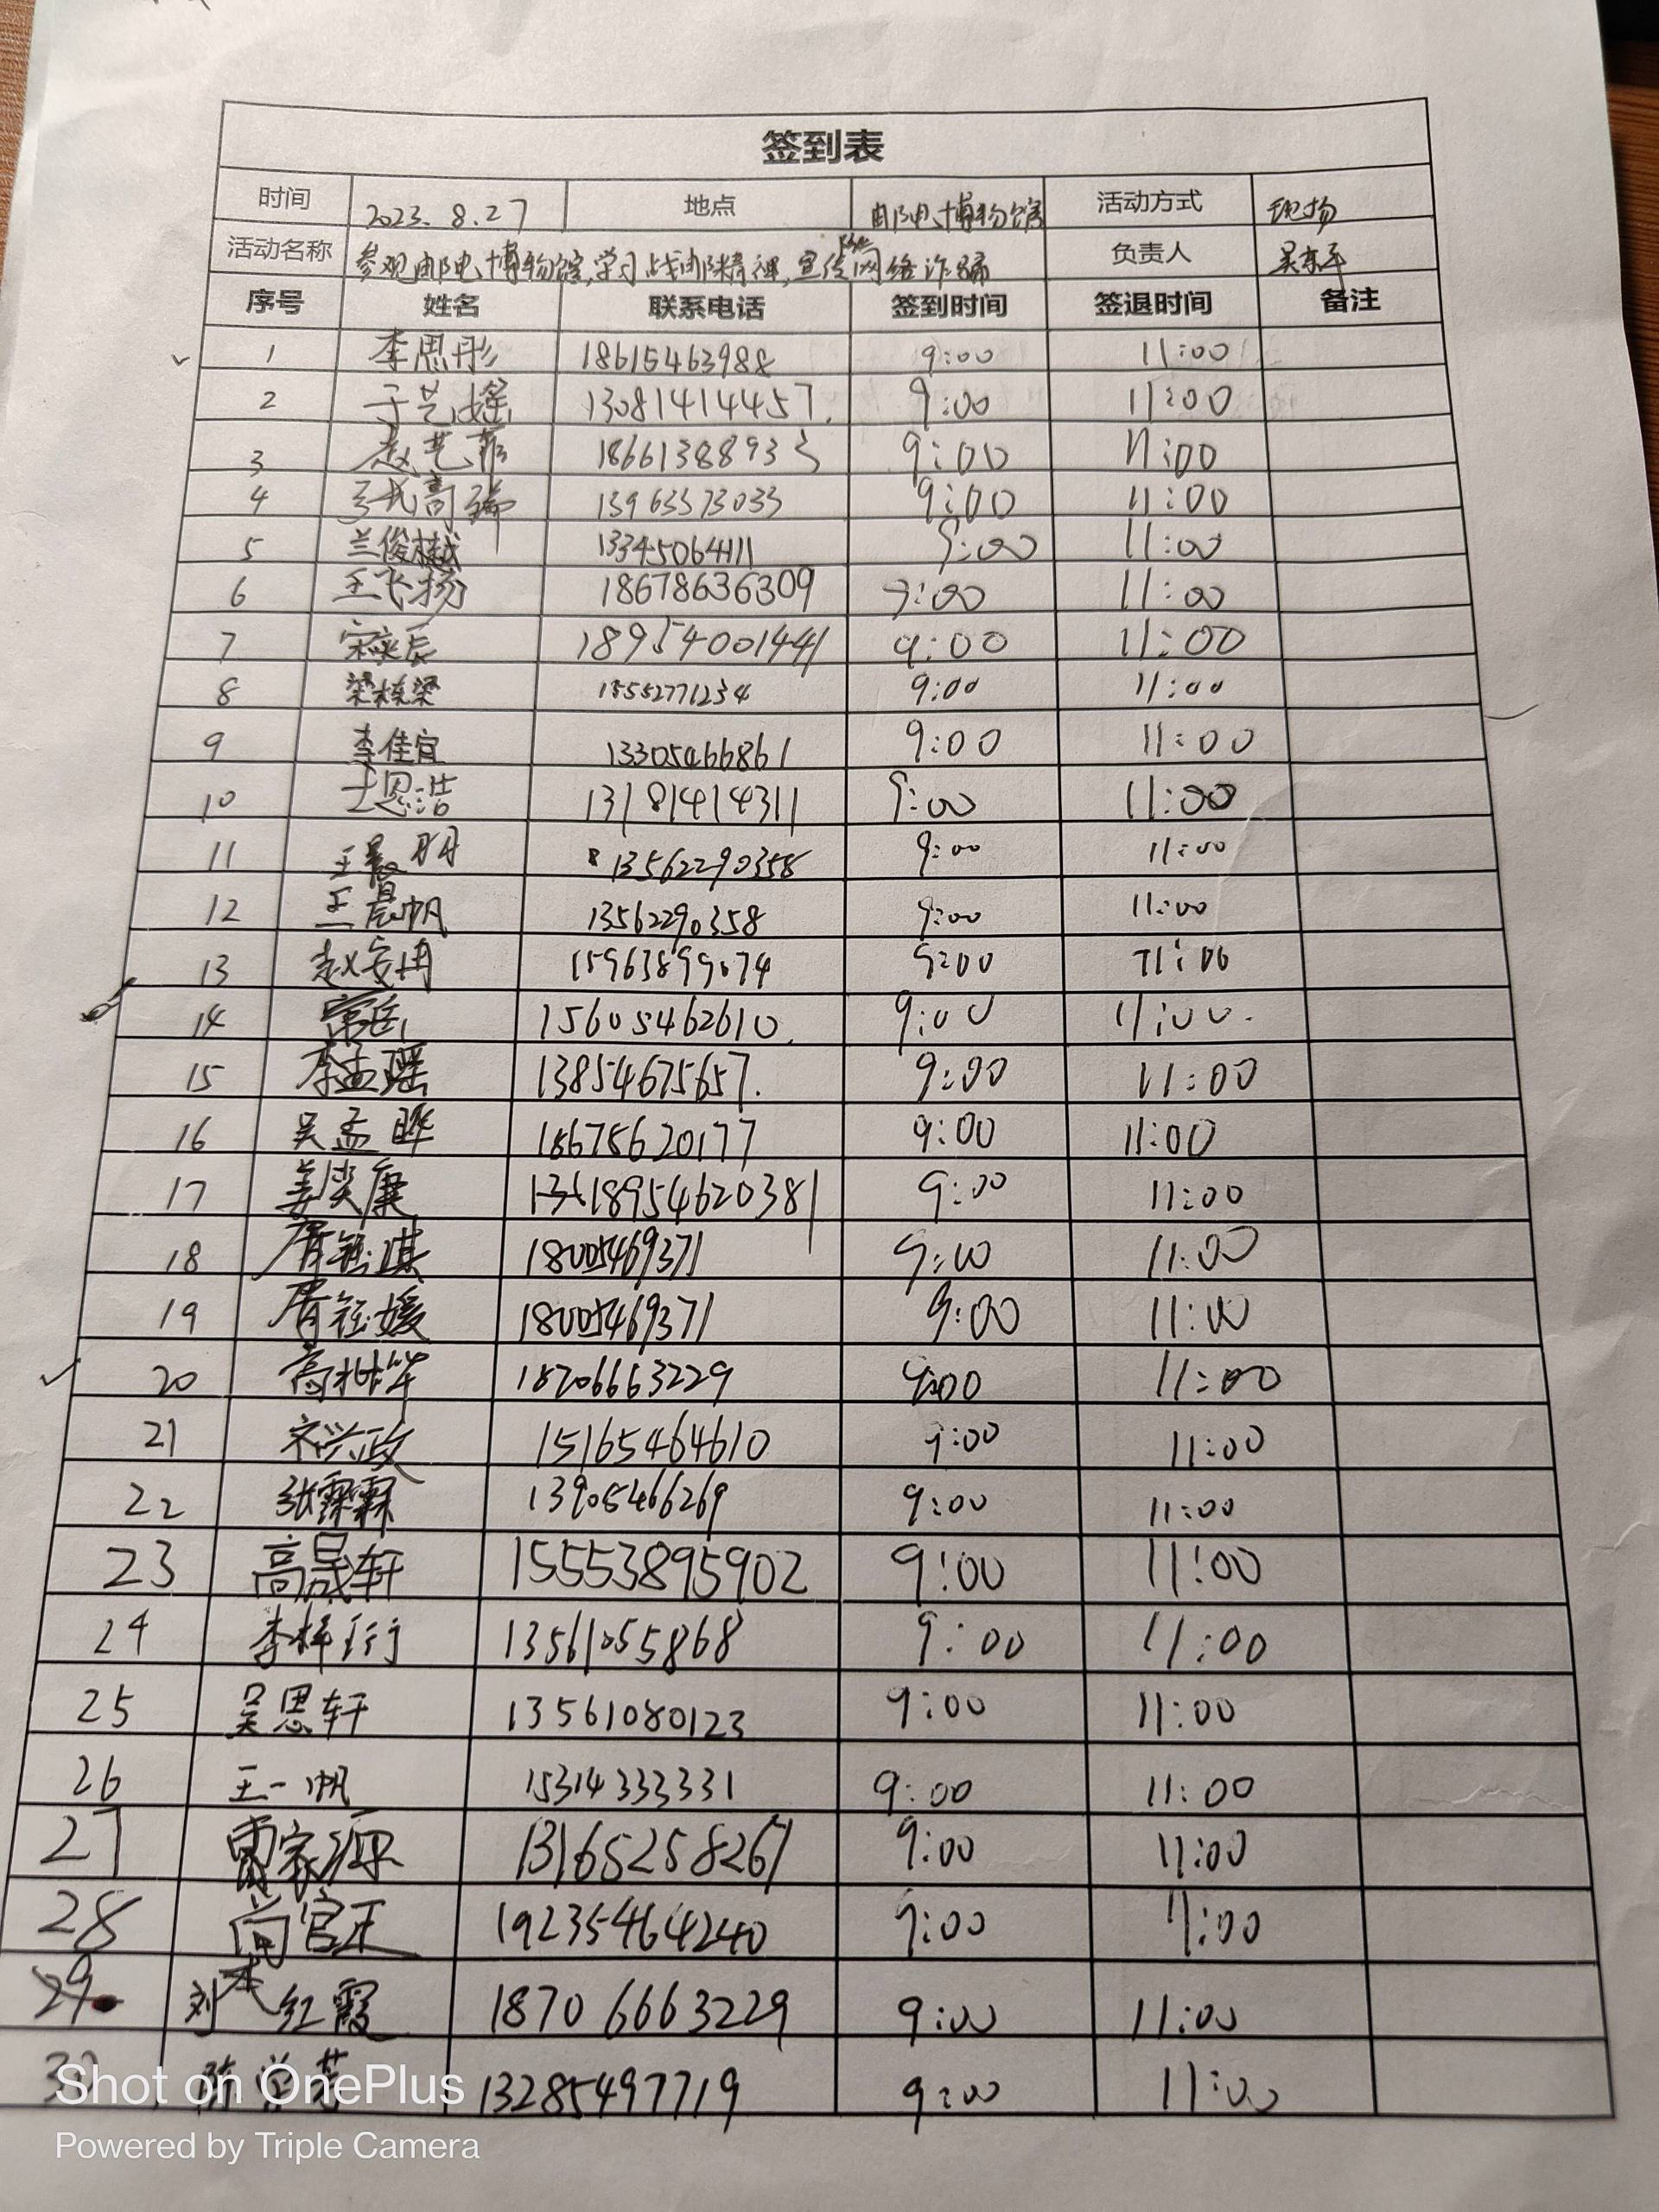 签到表
时间 2023.8.27 地点 邮电博物馆 活动方式 现场
活动名称 参观邮电博物馆,学习战邮精神,宣传防范网络诈骗 负责人 吴京平
序号 姓名 联系电话 签到时间 签退时间 备注
1 李思彤 18615463988 9:00 11:00
2 于艺媱 13081414457. 9:00 11:00
3 赵艺菲 18661388933 9:00 11:00
4 13963573033 9:00 11:00
5 兰俊樾 13345064111 9:00 11:00
6 王飞扬 18678636309 9:00 11:00
7 18954001441 9:00 11:00
8 梁栋梁 15552771234 9:00 11:00
9 李佳宜 13305466861 9:00 11:00
10 士恩浩 13181414311 9:00 11:00
11 王晨明 13562290358 9:00 11:00
12 王晨帆 13562290358 9:00 11:00
13 赵安冉 15963899074 9:00 11:00
14 15605462610. 9:00 11:00.
15 李孟瑶 13854675657. 9:00 11:00
16 吴孟晔 18678620177 9:00 11:00
17 姜奕康 18954620381 9:00 11:00
18 18005469371 9:00 11:00
19 18005469371 9:00 11:00
20 高兆烨 18706663229 9:00 11:00
21 宋兴政 15165464610 9:00 11:00
22 张霖霖 13905466269 9:00 11:00
23 高晟轩 15553895902 9:00 11:00
24 李梓珩 13561055868 9:00 11:00
25 吴思轩 13561080123 9:00 11:00
26 王一帆 15314333331 9:00 11:00
27 雷家源 13165258267 9:00 11:00
28 尚官正 19235464240 9:00 11:00
29. 刘红霞 18706663229 9:00 11:00
30 陈 13285497719 9:00 11:00
Shot on OnePlus
Powered by Triple Camera